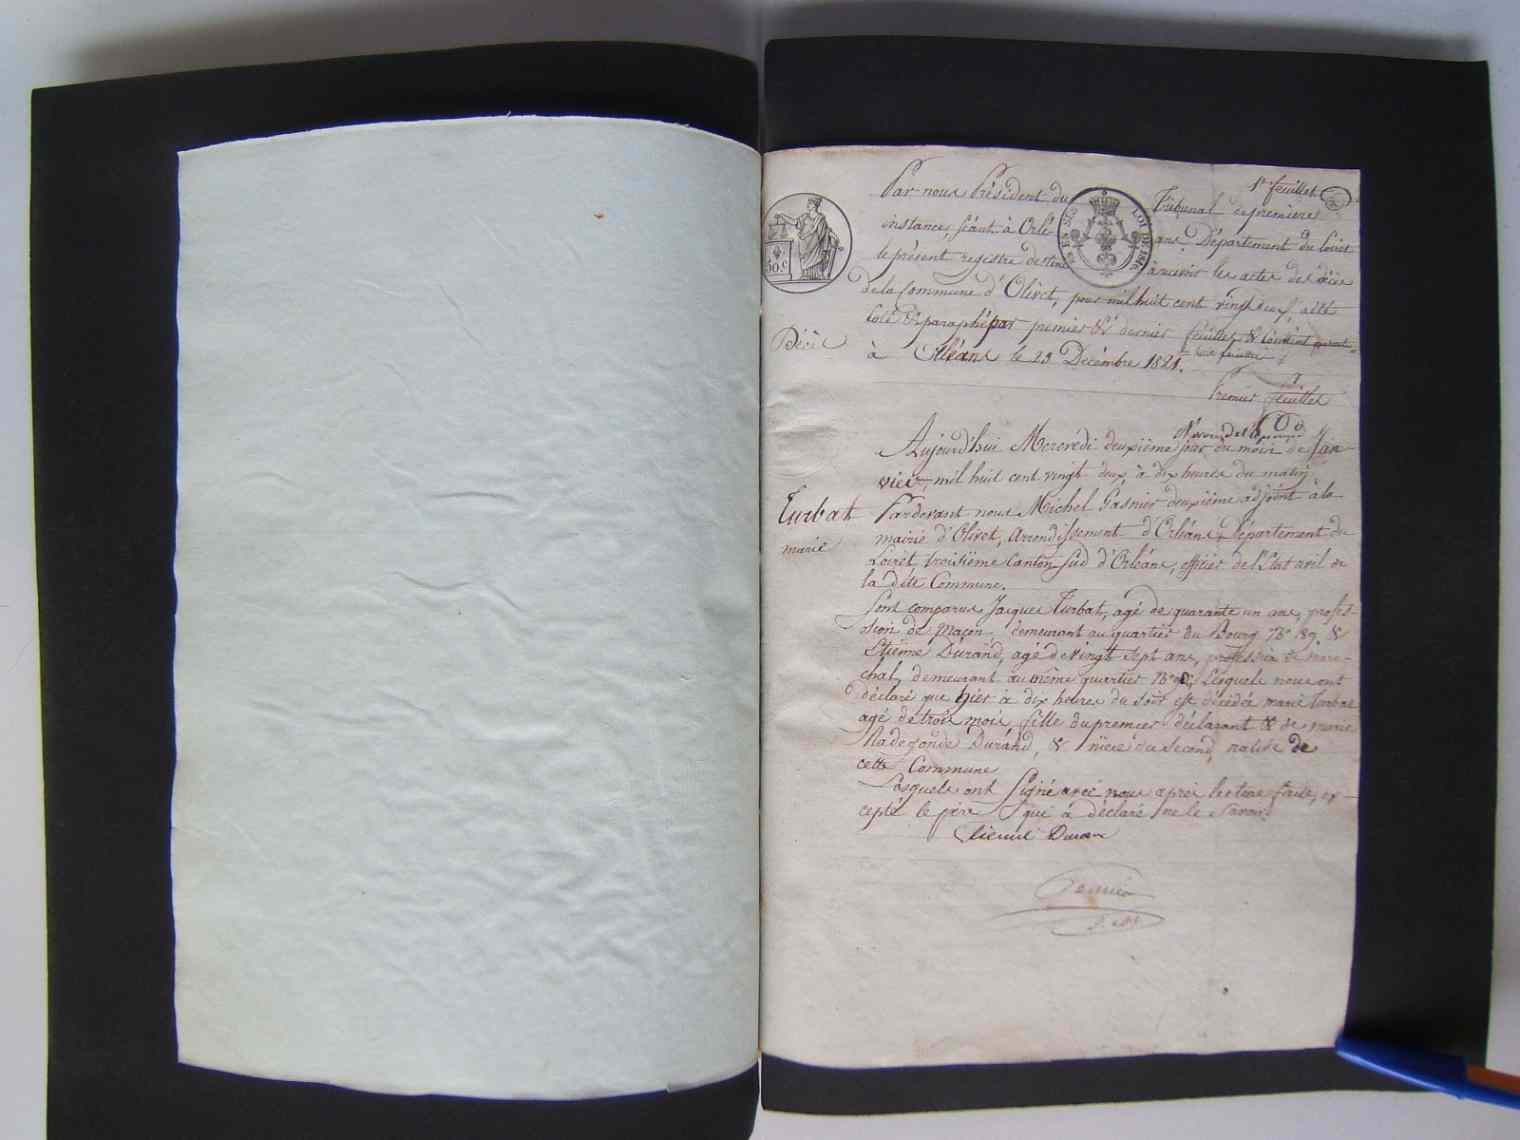 1er feuillet
Par nous Président du Tribunal de premiere
instance, séant à Orléans, Département du Loiret
le présent registre destiné à recevoir les actes de décès
de la Commune d'Olivet, pour mil huit cent vingt deux, a été
Coté & paraphé par premier & dernier feuillet & contient
à Orléans le 29 Décembre 1821.
50.C
LOI DE 1816
Décès
Premier feuillet
Aujourd'hui Mercredi deuxième jour du mois de Jan-
vier, mil huit cent vingt deux, à dix heures du matin
Turbat
marie
Pardevant nous Michel Gasnier deuxième adjoint à la
mairie d'Olivet, Arrondissement d'Orléans, Département du
Loiret, troisième Canton Sud d'Orléans, officier de l'Etat civil de
la dite Commune.
Sont comparus Jacques Turbat, agé de quarante un ans, profes-
ssion de Maçon, demeurant au quartier du Bourg No 89 &
Etienne Durand, agé de vingt sept ans, profession de mare-
chal, demeurant au même quartier No Lesquels nous ont
déclaré que hier à dix heures du soir est décédée marie Turbat
agé de trois mois, fille du premier déclarant & de marie
Radegonde Durand, & nièce du second, native de
cette Commune
Lesquels ont signé avec nous après lecture faite, ex-
cepté le père qui à déclaré ne le savoir.
etienne Duran
Gasnier